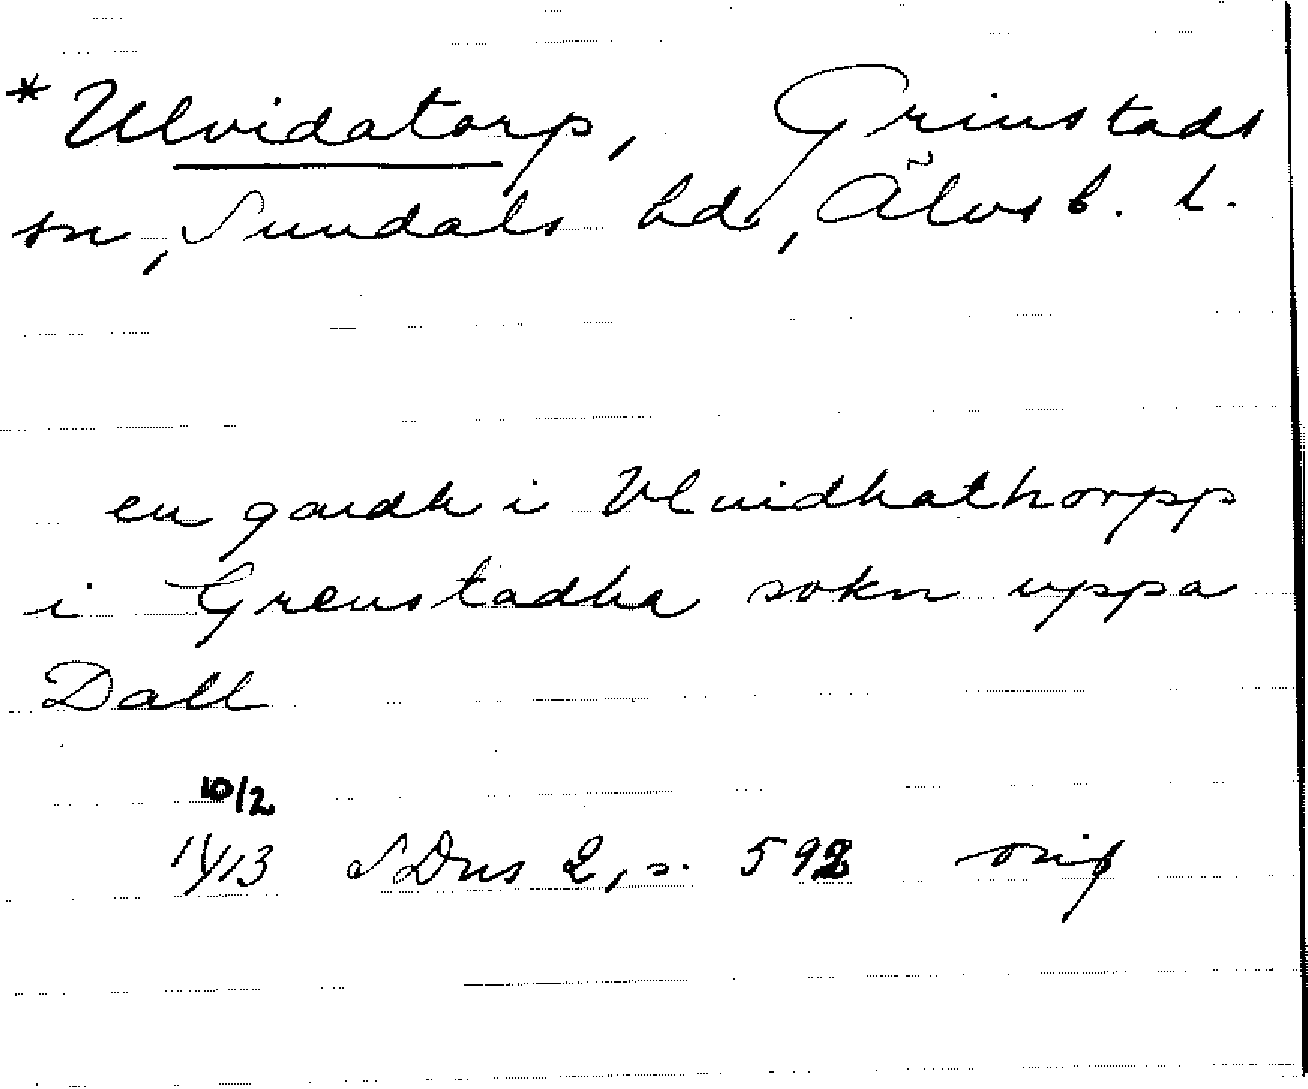 * Ulvidatorp, Grinstads
sn, Sundals hd, Älvsb. l.
en gardh i Vluidhathorpp
i Grenstadha sokn uppa
Dall
10/2
1413 SDns 2, s. 592 orig